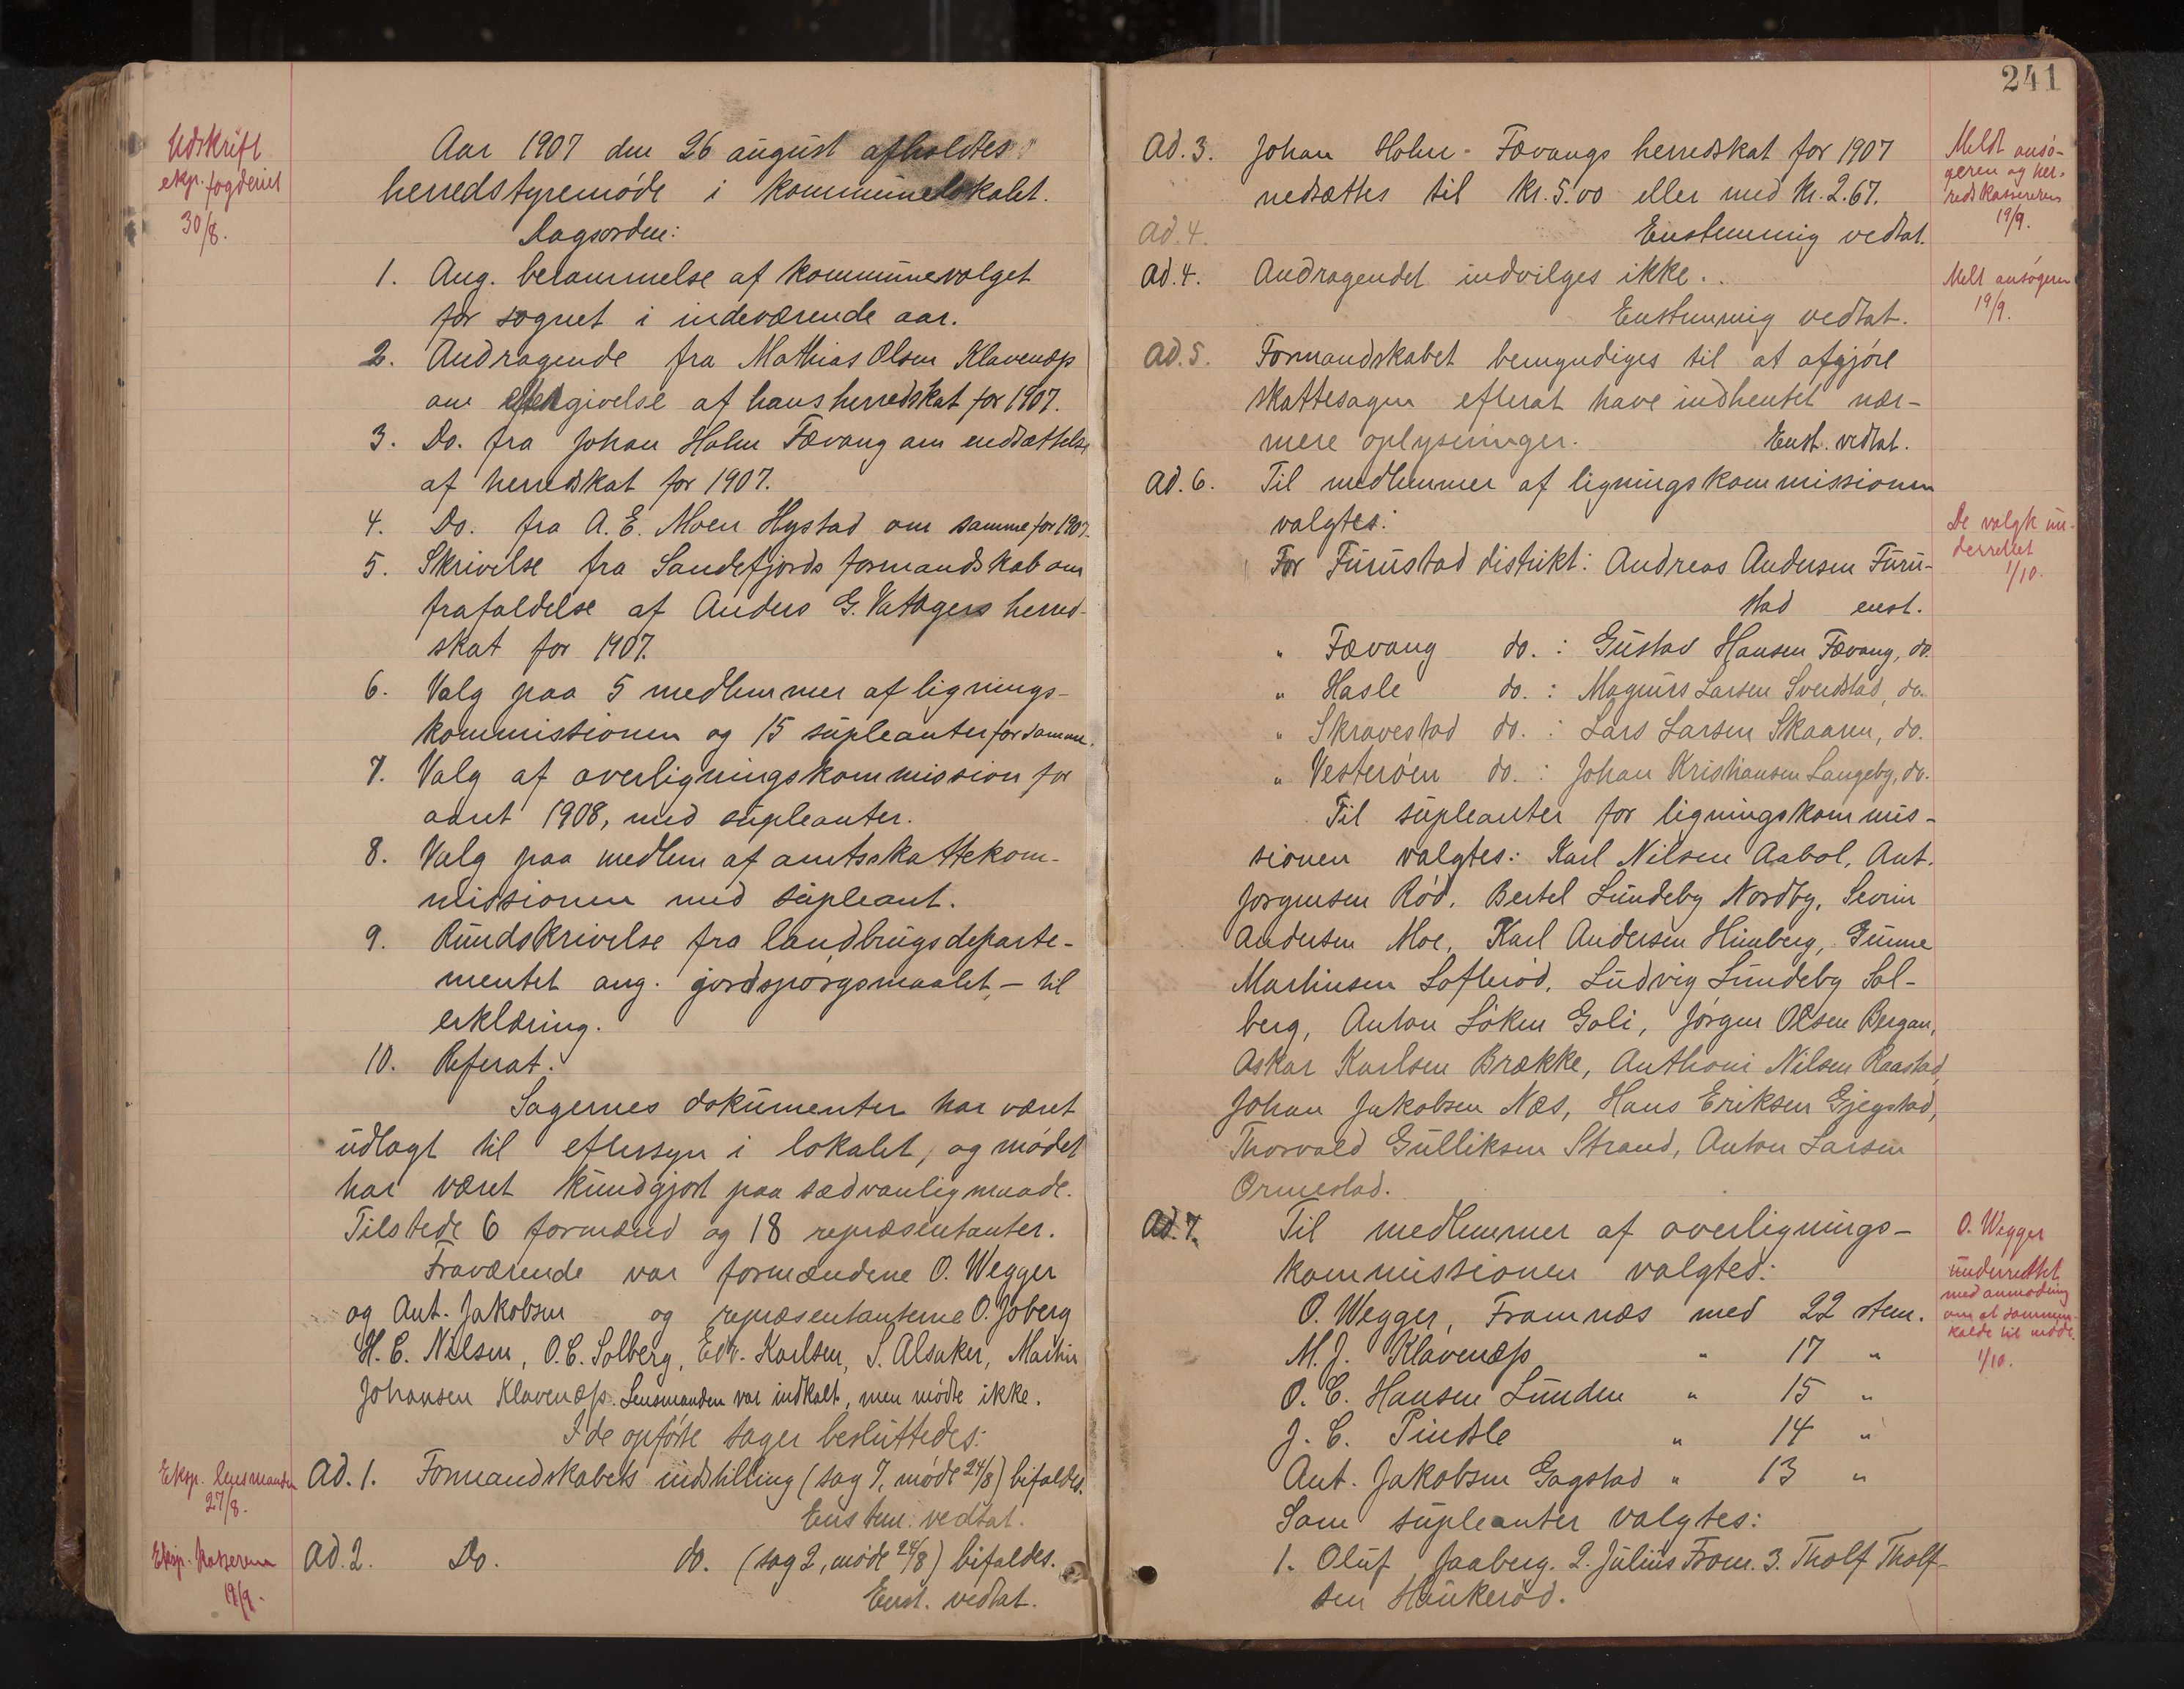 Udskrift
eksp. fogderiet
30/8.
Aar 1907 den 26 august afholdtes
herredstyremøde i kommunelokalet.
Dagsorden:
1. Ang. berammelse af kommunevalget
for sognet i indeværende aar.
2. Andragende fra Mathias Olsen Klavenæs
om eftergivelse af hans herredskat for 1907.
3. Do. fra Johan Holm Fævang om nedsættelse
af herredskat for 1907.
4. Do. fra A. E. Moen Hystad om samme for 1907.
5. Skrivelse fra Sandefjords formandskab om
frafaldelse af Anders G. Vatagers herred-
skat for 1907.
6. Valg paa 5 medlemmer af lignings-
kommissionen og 15 supleanter for samme.
7. Valg af overligningskommission for
aaret 1908, med supleanter.
8. Valg paa medlem af amtsskattekom-
missionen med supleant.
9. Rundskrivelse fra landbrugsdeparte-
mentet ang. jordspørgsmaalet, – til
erklæring.
10. Referat.
Sagernes dokumenter har været
udlagt til eftersyn i lokalet, og mødet
har været kundgjort paa sædvanlig maade.
Tilstede 6 formænd og 18 repræsentanter.
Fraværende var formændene O. Wegger
og Ant. Jakobsen og repræsentanterne O. Joberg
H. C. Nilsen, O. C. Solberg, Edv. Karlsen, S. Alsaker, Martin
Johansen Klavenæs. Lensmanden var indkalt, men mødte ikke.
I de opførte sager besluttedes:
Eksp. lensmanden
27/8.
Ad. 1. Formandskabets indstilling (sag 7, møde 24/8) bifaldes.
Enstem. vedtat.
Eksp. kasseren
19/9.
Ad. 2. Do. do. (sag 2, møde 24/8) bifaldes.
Enst. vedtat.
241
Ad. 3. Johan Holm-Fævangs herredskat for 1907
nedsættes til kr. 5.00 eller med kr. 2.67.
Ad. 4. Enstemmig vedtat.
Meldt ansø-
geren og her-
redskassereren
19/9.
Ad. 4. Andragendet indvilges ikke.
Enstemmig vedtat.
Meldt ansøgeren
19/9.
Ad. 5. Formandskabet bemyndiges til at afgjøre
skattesagen efterat have indhentet nær-
mere oplysninger. Enst. vedtat.
Ad. 6. Til medlemmer af ligningskommissionen
valgtes:
De valgte un-
derrettet
1/10.
For Furustad distrikt: Andreas Andersen Furu-
stad enst.
" Fævang do. : Gustav Hansen Fævang, do.
" Hasle do. : Magnus Larsen Sverdstad, do.
" Skravestad do. : Lars Larsen Skaarn, do.
" Vesterøen do. : Johan Kristiansen Langeby, do.
Til supleanter for ligningskommis-
sionen valgtes: Karl Nilsen Aabol, Ant.
Jørgensen Rød, Bertel Lundeby Nordby, Sevrin
Andersen Moe, Karl Andersen Himberg, Gunne
Martinsen Lofterød, Ludvig Lundeby Sol-
berg, Anton Løken Goli, Jørgen Olsen Bergan,
Askar Karlsen Brække, Anthoni Nilsen Raastad,
Johan Jakobsen Næs, Hans Eriksen Gjegstad,
Thorvald Gulliksen Strand, Anton Larsen
Ormestad.
Ad. 7. Til medlemmer af overlignings-
kommissionen valgtes:
O. Wegger
underrettet
med anmodning
om at sammen-
kalde til møde.
1/10.
O. Wegger, Framnæs med 22 stem.
M. J. Klavenæs " 17 "
O. C. Hansen Lunden " 15 "
J. C. Pindsle " 14 "
Ant. Jakobsen Gogstad " 13 "
Som supleanter valgtes:
1. Oluf Jaaberg. 2. Julius From. 3. Tholf Tholf-
sen Haukerød.